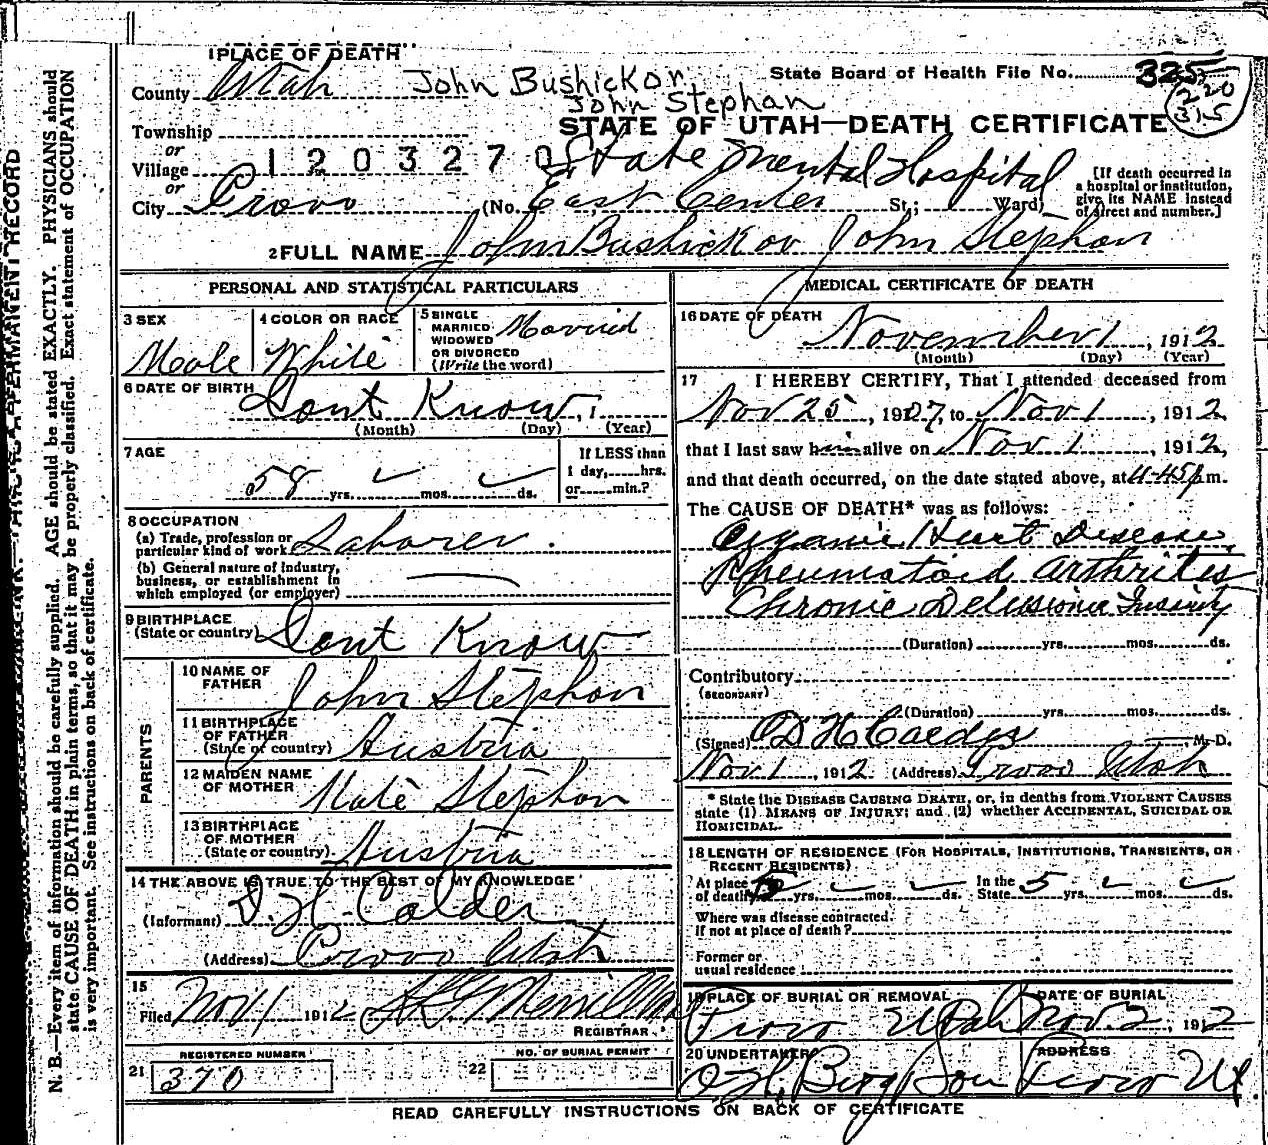 1 PLACE OF DEATH
County Utah
John Bushickor
John Stephan
State Board of Health File No. 325
220
315
STATE OF UTAH—DEATH CERTIFICATE
Township
or
Village
1203270
or
City Provo
State Mental Hospital
(No. East Center St.; Ward)
[If death occurred in
a hospital or institution,
give its NAME instead
of street and number.]
2 FULL NAME John Bushickov John Stephan
PERSONAL AND STATISTICAL PARTICULARS
3 SEX
Male
4 COLOR OR RACE
White
5 SINGLE
MARRIED
WIDOWED
OR DIVORCED
(Write the word)
Married
6 DATE OF BIRTH
Dont Know, 1
(Month) (Day) (Year)
7 AGE
58 yrs. mos. ds.
If LESS than
1 day, hrs.
or min.?
8 OCCUPATION
(a) Trade, profession or
particular kind of work Laborer.
(b) General nature of industry,
business, or establishment in
which employed (or employer)
9 BIRTHPLACE
(State or country) Dont Know
PARENTS
10 NAME OF
FATHER John Stephan
11 BIRTHPLACE
OF FATHER
(State or country) Austria
12 MAIDEN NAME
OF MOTHER Kate Stephan
13 BIRTHPLACE
OF MOTHER
(State or country) Austria
14 THE ABOVE IS TRUE TO THE BEST OF MY KNOWLEDGE
(Informant) D. H. Calder
(Address) Provo Utah
15
Filed Nov 1 1912
REGISTRAR.
REGISTERED NUMBER
21 370
NO. OF BURIAL PERMIT
22
MEDICAL CERTIFICATE OF DEATH
16 DATE OF DEATH
November 1, 1912
(Month) (Day) (Year)
17 I HEREBY CERTIFY, That I attended deceased from
Nov 25, 1907, to Nov 1, 1912,
that I last saw him alive on Nov 1, 1912,
and that death occurred, on the date stated above, at 11-45 p m.
The CAUSE OF DEATH* was as follows:
Organic Heart Disease
Rheumatoid Arthritis
Chronic Delusional Insanity
(Duration) yrs. mos. ds.
Contributory
(SECONDARY)
(Duration) yrs. mos. ds.
(Signed) D H Calder, M. D.
Nov 1, 1912 (Address) Provo Utah
* State the DISEASE CAUSING DEATH, or, in deaths from VIOLENT CAUSES
state (1) MEANS OF INJURY; and (2) whether ACCIDENTAL, SUICIDAL OR
HOMICIDAL.
18 LENGTH OF RESIDENCE (FOR HOSPITALS, INSTITUTIONS, TRANSIENTS, OR
RECENT RESIDENTS)
At place
of death 5 yrs. mos. ds.
In the
State 5 yrs. mos. ds.
Where was disease contracted
if not at place of death?
Former or
usual residence
19 PLACE OF BURIAL OR REMOVAL
Provo Utah
DATE OF BURIAL
Nov. 2, 1912
20 UNDERTAKER
O. H. Berg Son
ADDRESS
Provo Ut
READ CAREFULLY INSTRUCTIONS ON BACK OF CERTIFICATE
THIS IS A PERMANENT RECORD
N. B.—Every item of information should be carefully supplied. AGE should be stated EXACTLY. PHYSICIANS should
state CAUSE OF DEATH in plain terms, so that it may be properly classified. Exact statement of OCCUPATION
is very important. See instructions on back of certificate.